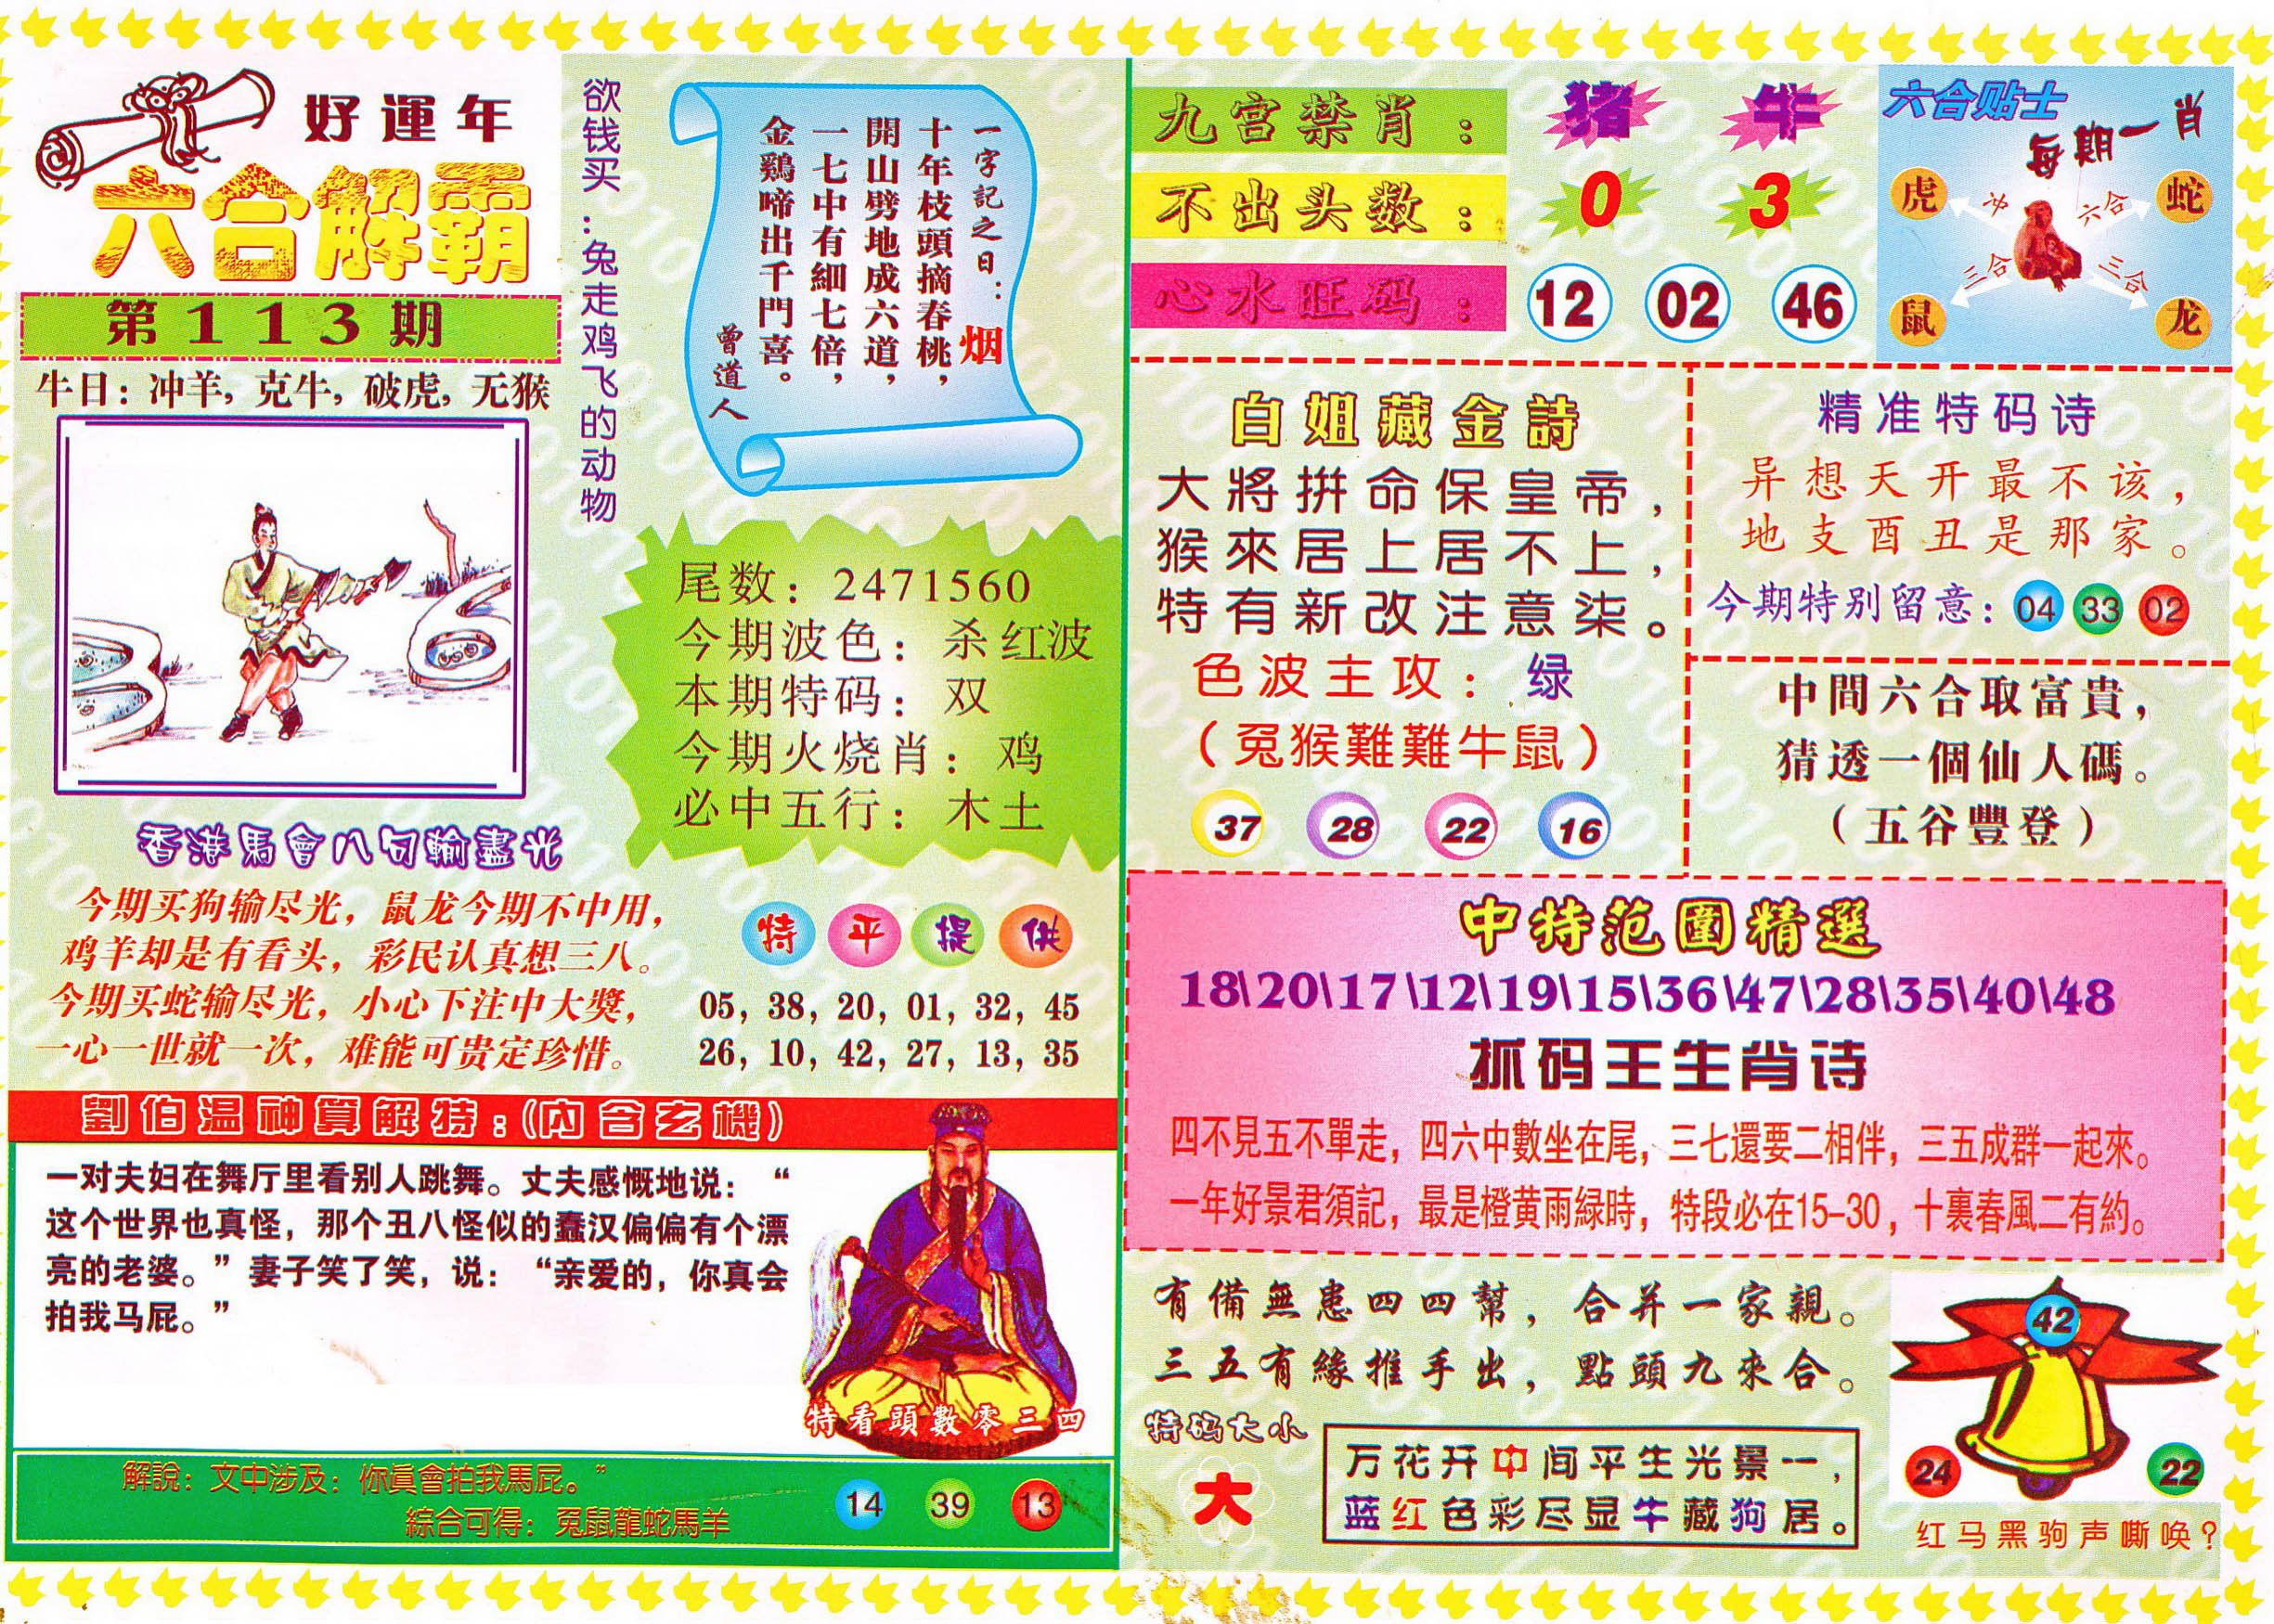 好運年
六合解霸
第113期
牛日：冲羊，克牛，破虎，无猴
欲钱买：兔走鸡飞的动物
一字記之日：烟
十年枝頭摘春桃，
開山劈地成六道，
一七中有細七倍，
金鷄啼出千門喜。
曾道人
尾数：2471560
今期波色：杀红波
本期特码：双
今期火烧肖：鸡
必中五行：木土
香港馬會八句輸盡光
今期买狗输尽光，鼠龙今期不中用，
鸡羊却是有看头，彩民认真想三八。
今期买蛇输尽光，小心下注中大獎，
一心一世就一次，难能可贵定珍惜。
特平提供
05，38，20，01，32，45
26，10，42，27，13，35
劉伯温神算解特：（内含玄機）
一对夫妇在舞厅里看别人跳舞。丈夫感慨地说：“
这个世界也真怪，那个丑八怪似的蠢汉偏偏有个漂
亮的老婆。”妻子笑了笑，说：“亲爱的，你真会
拍我马屁。”
特看頭數零三四
解說：文中涉及：你眞會拍我馬屁。”
綜合可得：兎鼠龍蛇馬羊
14 39 13
九宫禁肖：猪 牛
不出头数：0 3
心水旺码：12 02 46
六合贴士
每期一肖
虎 冲 六合 蛇
鼠 三合 三合 龙
白姐藏金詩
大將拚命保皇帝，
猴來居上居不上，
特有新改注意柒。
色波主攻：绿
（兎猴難難牛鼠）
37 28 22 16
精准特码诗
异想天开最不该，
地支酉丑是那家。
今期特别留意：04 33 02
中間六合取富貴，
猜透一個仙人碼。
（五谷豐登）
中特范圍精選
18\20\17\12\19\15\36\47\28\35\40\48
抓码王生肖诗
四不見五不單走，四六中數坐在尾，三七還要二相伴，三五成群一起來。
一年好景君須記，最是橙黄雨緑時，特段必在15-30，十裏春風二有約。
有備無患四四幫，合并一家親。
三五有緣推手出，點頭九來合。
特码大小
大
万花开中间平生光景一，
蓝红色彩尽显牛藏狗居。
42
24 22
红马黑驹声嘶唤？